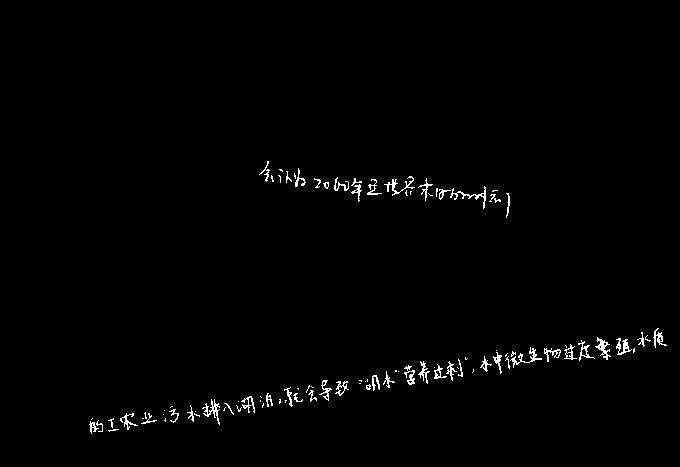 会认为2000年是世界末日的时刻
的工农业污水排入湖泊，就会导致“湖水“营养过剩”，水中微生物过度繁殖，水质